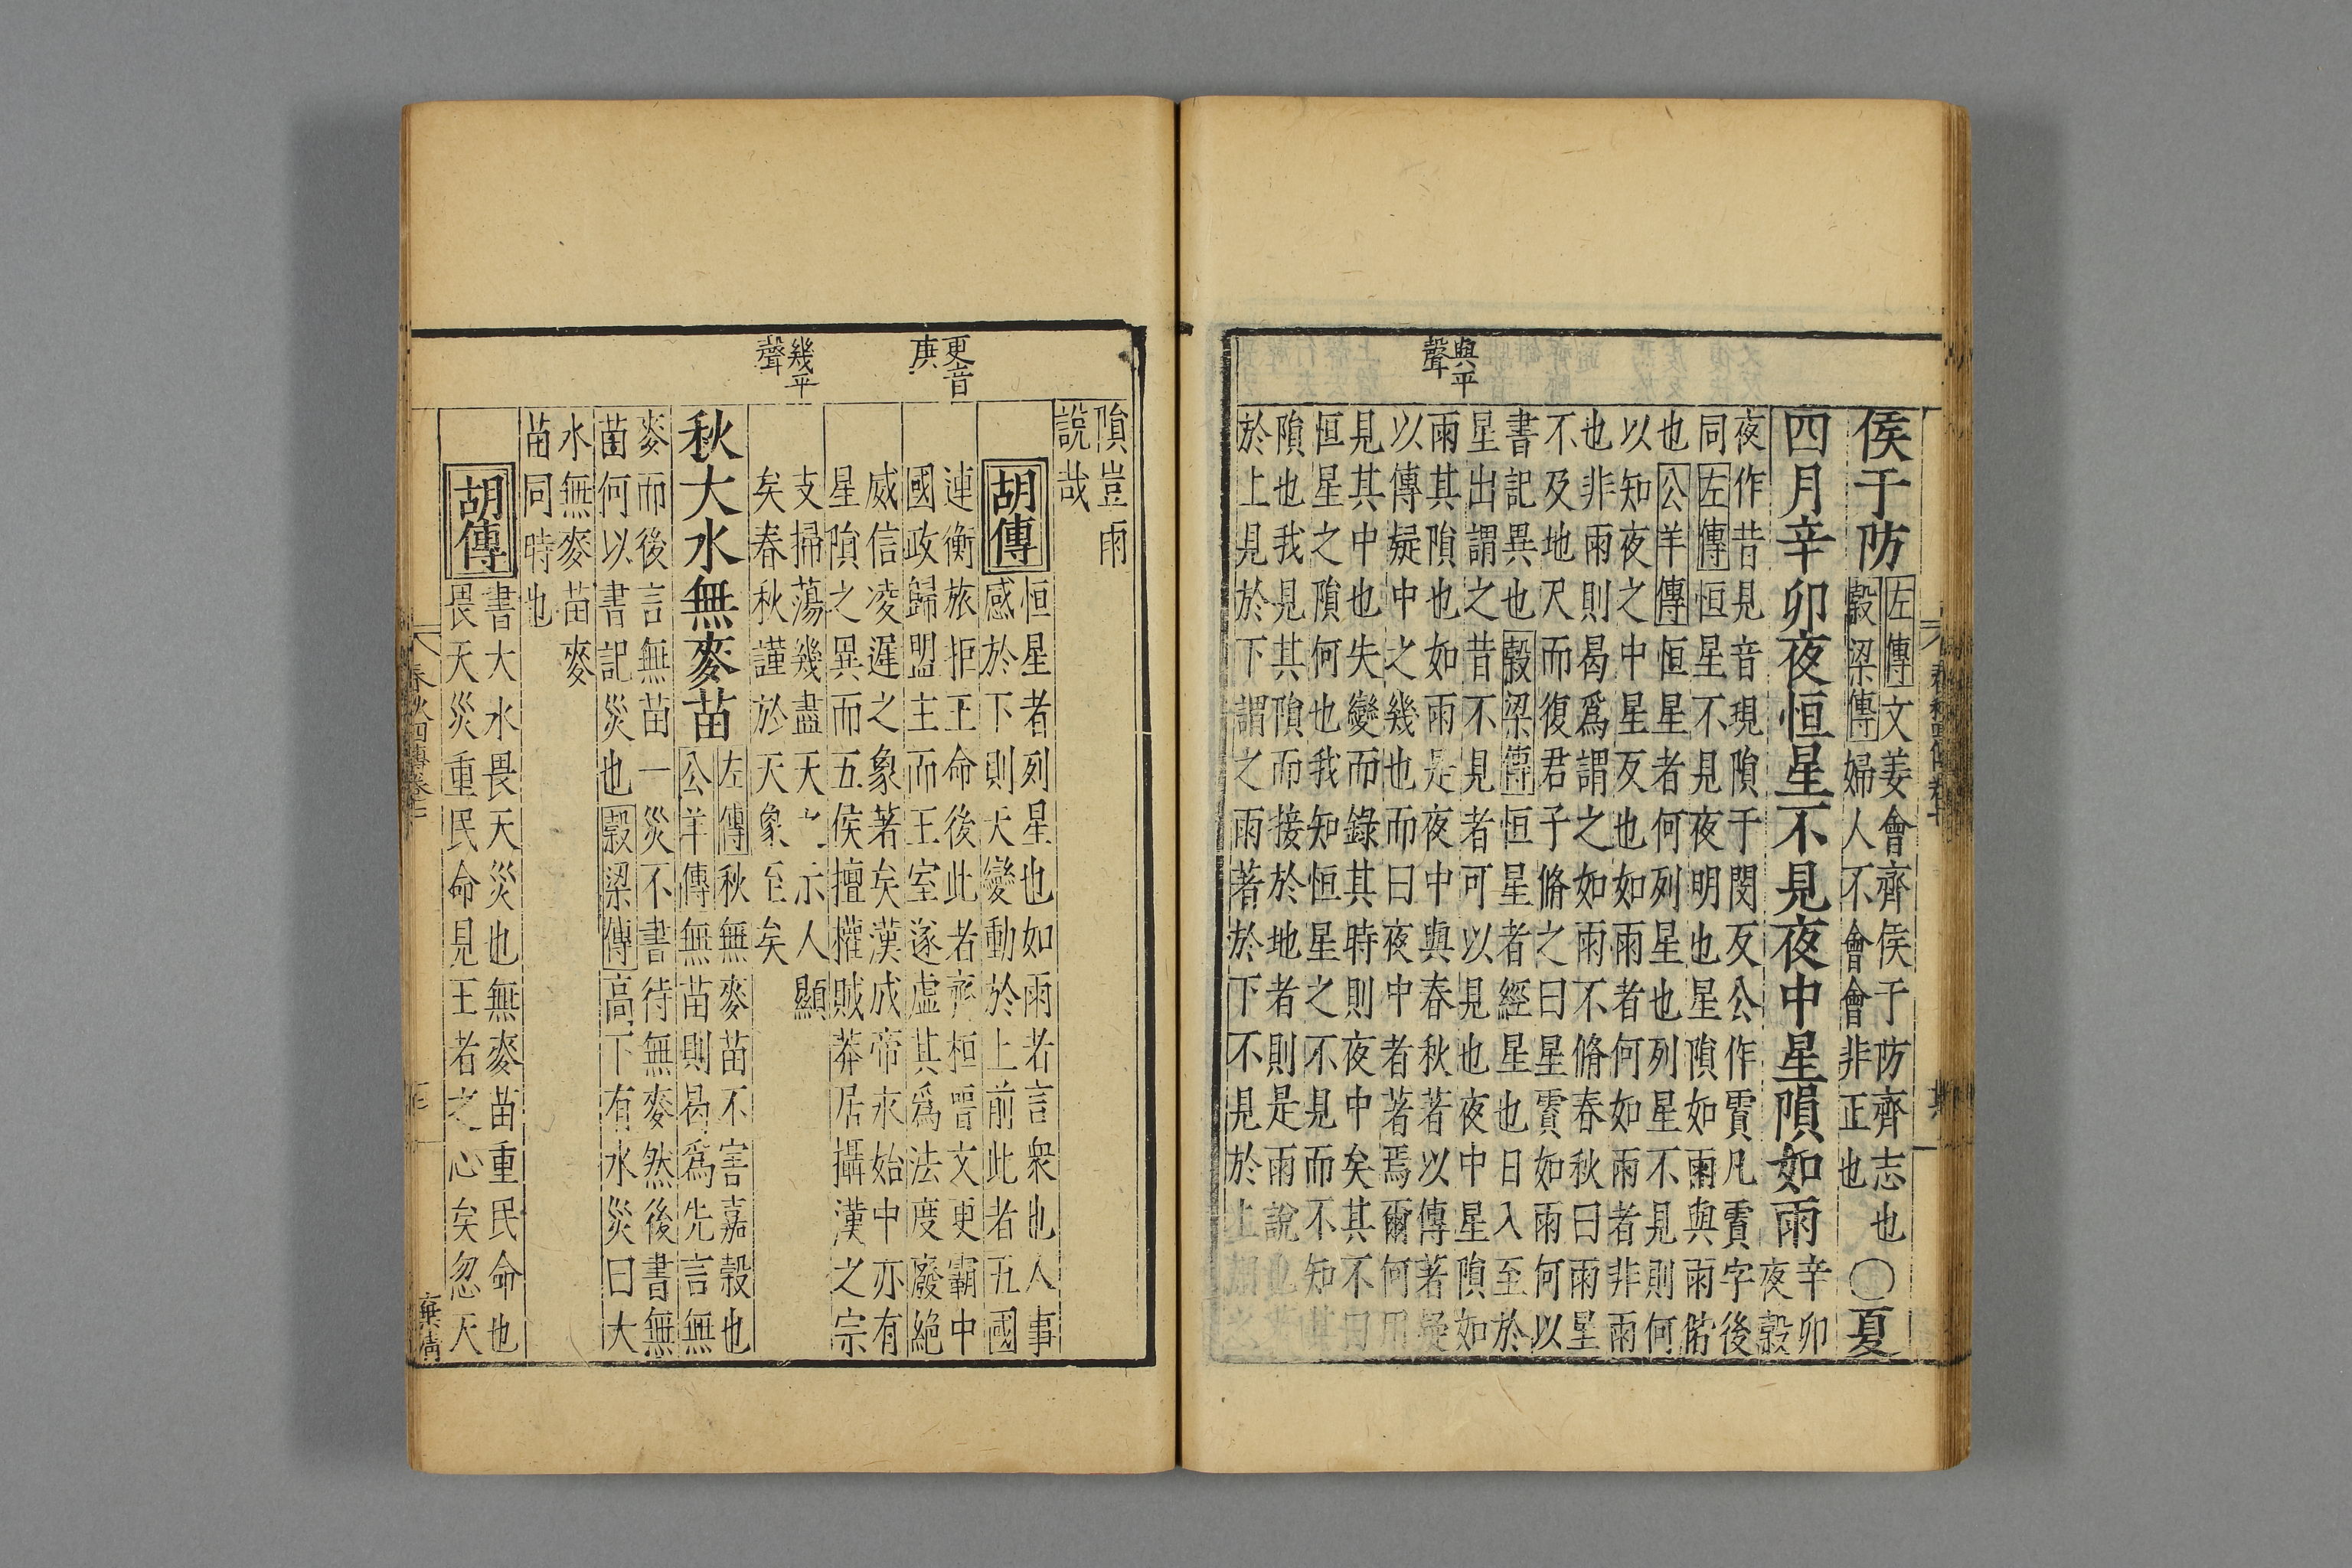 侯于防
左傳文姜會齊侯于防齊志也
穀梁傳婦人不會會非正也
〇夏
四月辛卯夜恒星不見夜中星隕如雨
辛卯
夜穀
夜作昔見音現隕于閔反公作霣凡霣字後
同左傳恒星不見夜明也星隕如雨與雨偕
也公羊傳恒星者何列星也列星不見則何
以知夜之中星反也如雨者何如雨者非雨
也非雨則曷爲謂之如雨不脩春秋曰雨星
不及地尺而復君子脩之曰星霣如雨何以
書記異也穀梁傳恒星者經星也日入至於
星出謂之昔不見者可以見也夜中星隕如
雨其隕也如雨是夜中與春秋著以傳著疑
以傳疑中之幾也而曰夜中者著焉爾何用
見其中也失變而錄其時則夜中矣其不曰
恒星之隕何也我知恒星之不見而不知其
隕也我見其隕而接於地者則是雨說也著
於上見於下謂之雨著於下不見於上
與平
聲
隕豈雨
說哉
胡傳
恒星者列星也如雨者言衆也人事
感於下則天變動於上前此者五國
連衡旅拒王命後此者齊桓晉文更霸中
國政歸盟主而王室遂虛其爲法度廢絕
威信凌遲之象著矣漢成帝永始中亦有
星隕之異而五侯擅權賊莽居攝漢之宗
支掃蕩幾盡天之示人顯
矣春秋謹於天象至矣
更音
庚
幾平
聲
秋大水無麥苗
左傳秋無麥苗不害嘉穀也
公羊傳無苗則曷爲先言無
麥而後言無苗一災不書待無麥然後書無
苗何以書記災也穀梁傳高下有水災曰大
水無麥苗麥
苗同時也
胡傳
書大水畏天災也無麥苗重民命也
畏天災重民命見王者之心矣忽天